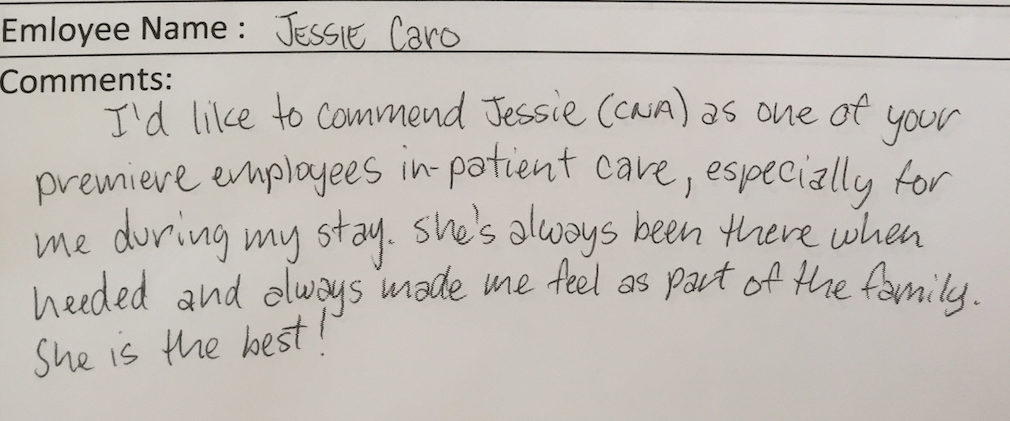 Emloyee Name : JESSIE Caro
Comments:
I'd like to commend Jessie (CNA) as one of your
premiere employees in-patient care, especially for
me during my stay. She's always been there when
needed and always made me feel as part of the family.
She is the best!